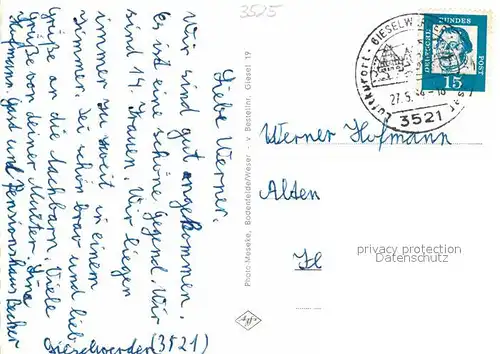 3525
Liebe Werner.
Wir sind gut angekommen.
Es ist eine schöne Gegend. Wir
sind 14 Frauen. Wir liegen
immer zu zweit in einem
Zimmer. Sei schön brav und lieb.
Grüße an die Nachbarn. Viele
Grüße von deiner Mutter.
Hofmann. Gast und Pensionshaus Becher
Gieselwerder (3521)
Photo-Meseke, Bodenfelde/Weser - v Bestellnr. Giesel 19
Luftkurort · GIESELWERDER
27.5.
3521
DEUTSCHE BUNDESPOST
15
Werner Hofmann
Alten
privacy protection
Datenschutz